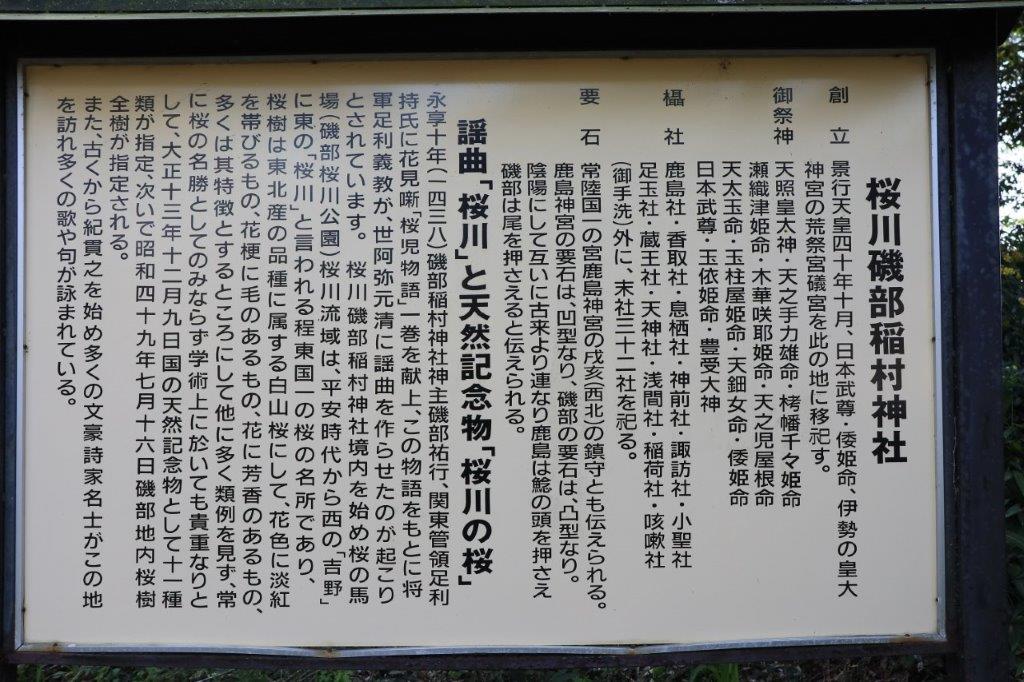 桜川磯部稲村神社
創立 景行天皇四十年十月、日本武尊・倭姫命、伊勢の皇大
神宮の荒祭宮礒宮を此の地に移祀す。
御祭神 天照皇太神・天之手力雄命・栲幡千々姫命
瀬織津姫命・木華咲耶姫命・天之児屋根命
天太玉命・玉柱屋姫命・天鈿女命・倭姫命
日本武尊・玉依姫命・豊受大神
攝社 鹿島社・香取社・息栖社・神前社・諏訪社・小聖社
足玉社・蔵王社・天神社・浅間社・稲荷社・咳嗽社
(御手洗)外に、末社三十二社を祀る。
要石 常陸国一の宮鹿島神宮の戌亥(西北)の鎮守とも伝えられる。
鹿島神宮の要石は、凹型なり、磯部の要石は、凸型なり。
陰陽にして互いに古来より連なり鹿島は鯰の頭を押さえ
磯部は尾を押さえると伝えられる。
謡曲「桜川」と天然記念物「桜川の桜」
永享十年(一四三八)磯部稲村神社神主磯部祐行、関東管領足利
持氏に花見噺「桜児物語」一巻を献上、この物語をもとに将
軍足利義教が、世阿弥元清に謡曲を作らせたのが起こり
とされています。 桜川磯部稲村神社境内を始め桜の馬
場(磯部桜川公園)桜川流域は、平安時代から西の「吉野」
に東の「桜川」と言われる程東国一の桜の名所であり、
桜樹は東北産の品種に属する白山桜にして、花色に淡紅
を帯びるもの、花梗に毛のあるもの、花に芳香のあるもの、
多くは其特徴とするところにして他に多く類例を見ず、常
に桜の名勝としてのみならず学術上に於いても貴重なりと
して、大正十三年十二月九日国の天然記念物として十一種
類が指定、次いで昭和四十九年七月十六日磯部地内桜樹
全樹が指定される。
また、古くから紀貫之を始め多くの文豪詩家名士がこの地
を訪れ多くの歌や句が詠まれている。